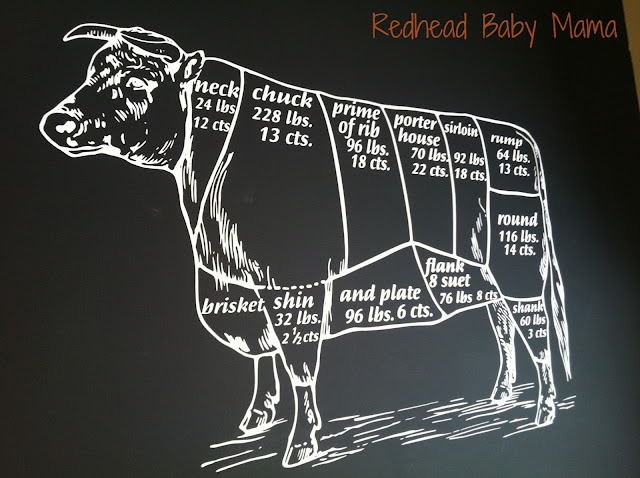 Redhead Baby Mama
neck
24 lbs
12 cts
chuck
228 lbs.
13 cts.
prime
of rib
96 lbs.
18 cts.
porter
house
70 lbs.
22 cts.
sirloin
92 lbs
18 cts.
rump
64 lbs.
13 cts.
round
116 lbs.
14 cts.
brisket
shin
32 lbs.
2 ½ cts
and plate
96 lbs. 6 cts.
flank
8 suet
76 lbs 8 cts
shank
60 lbs
3 cts